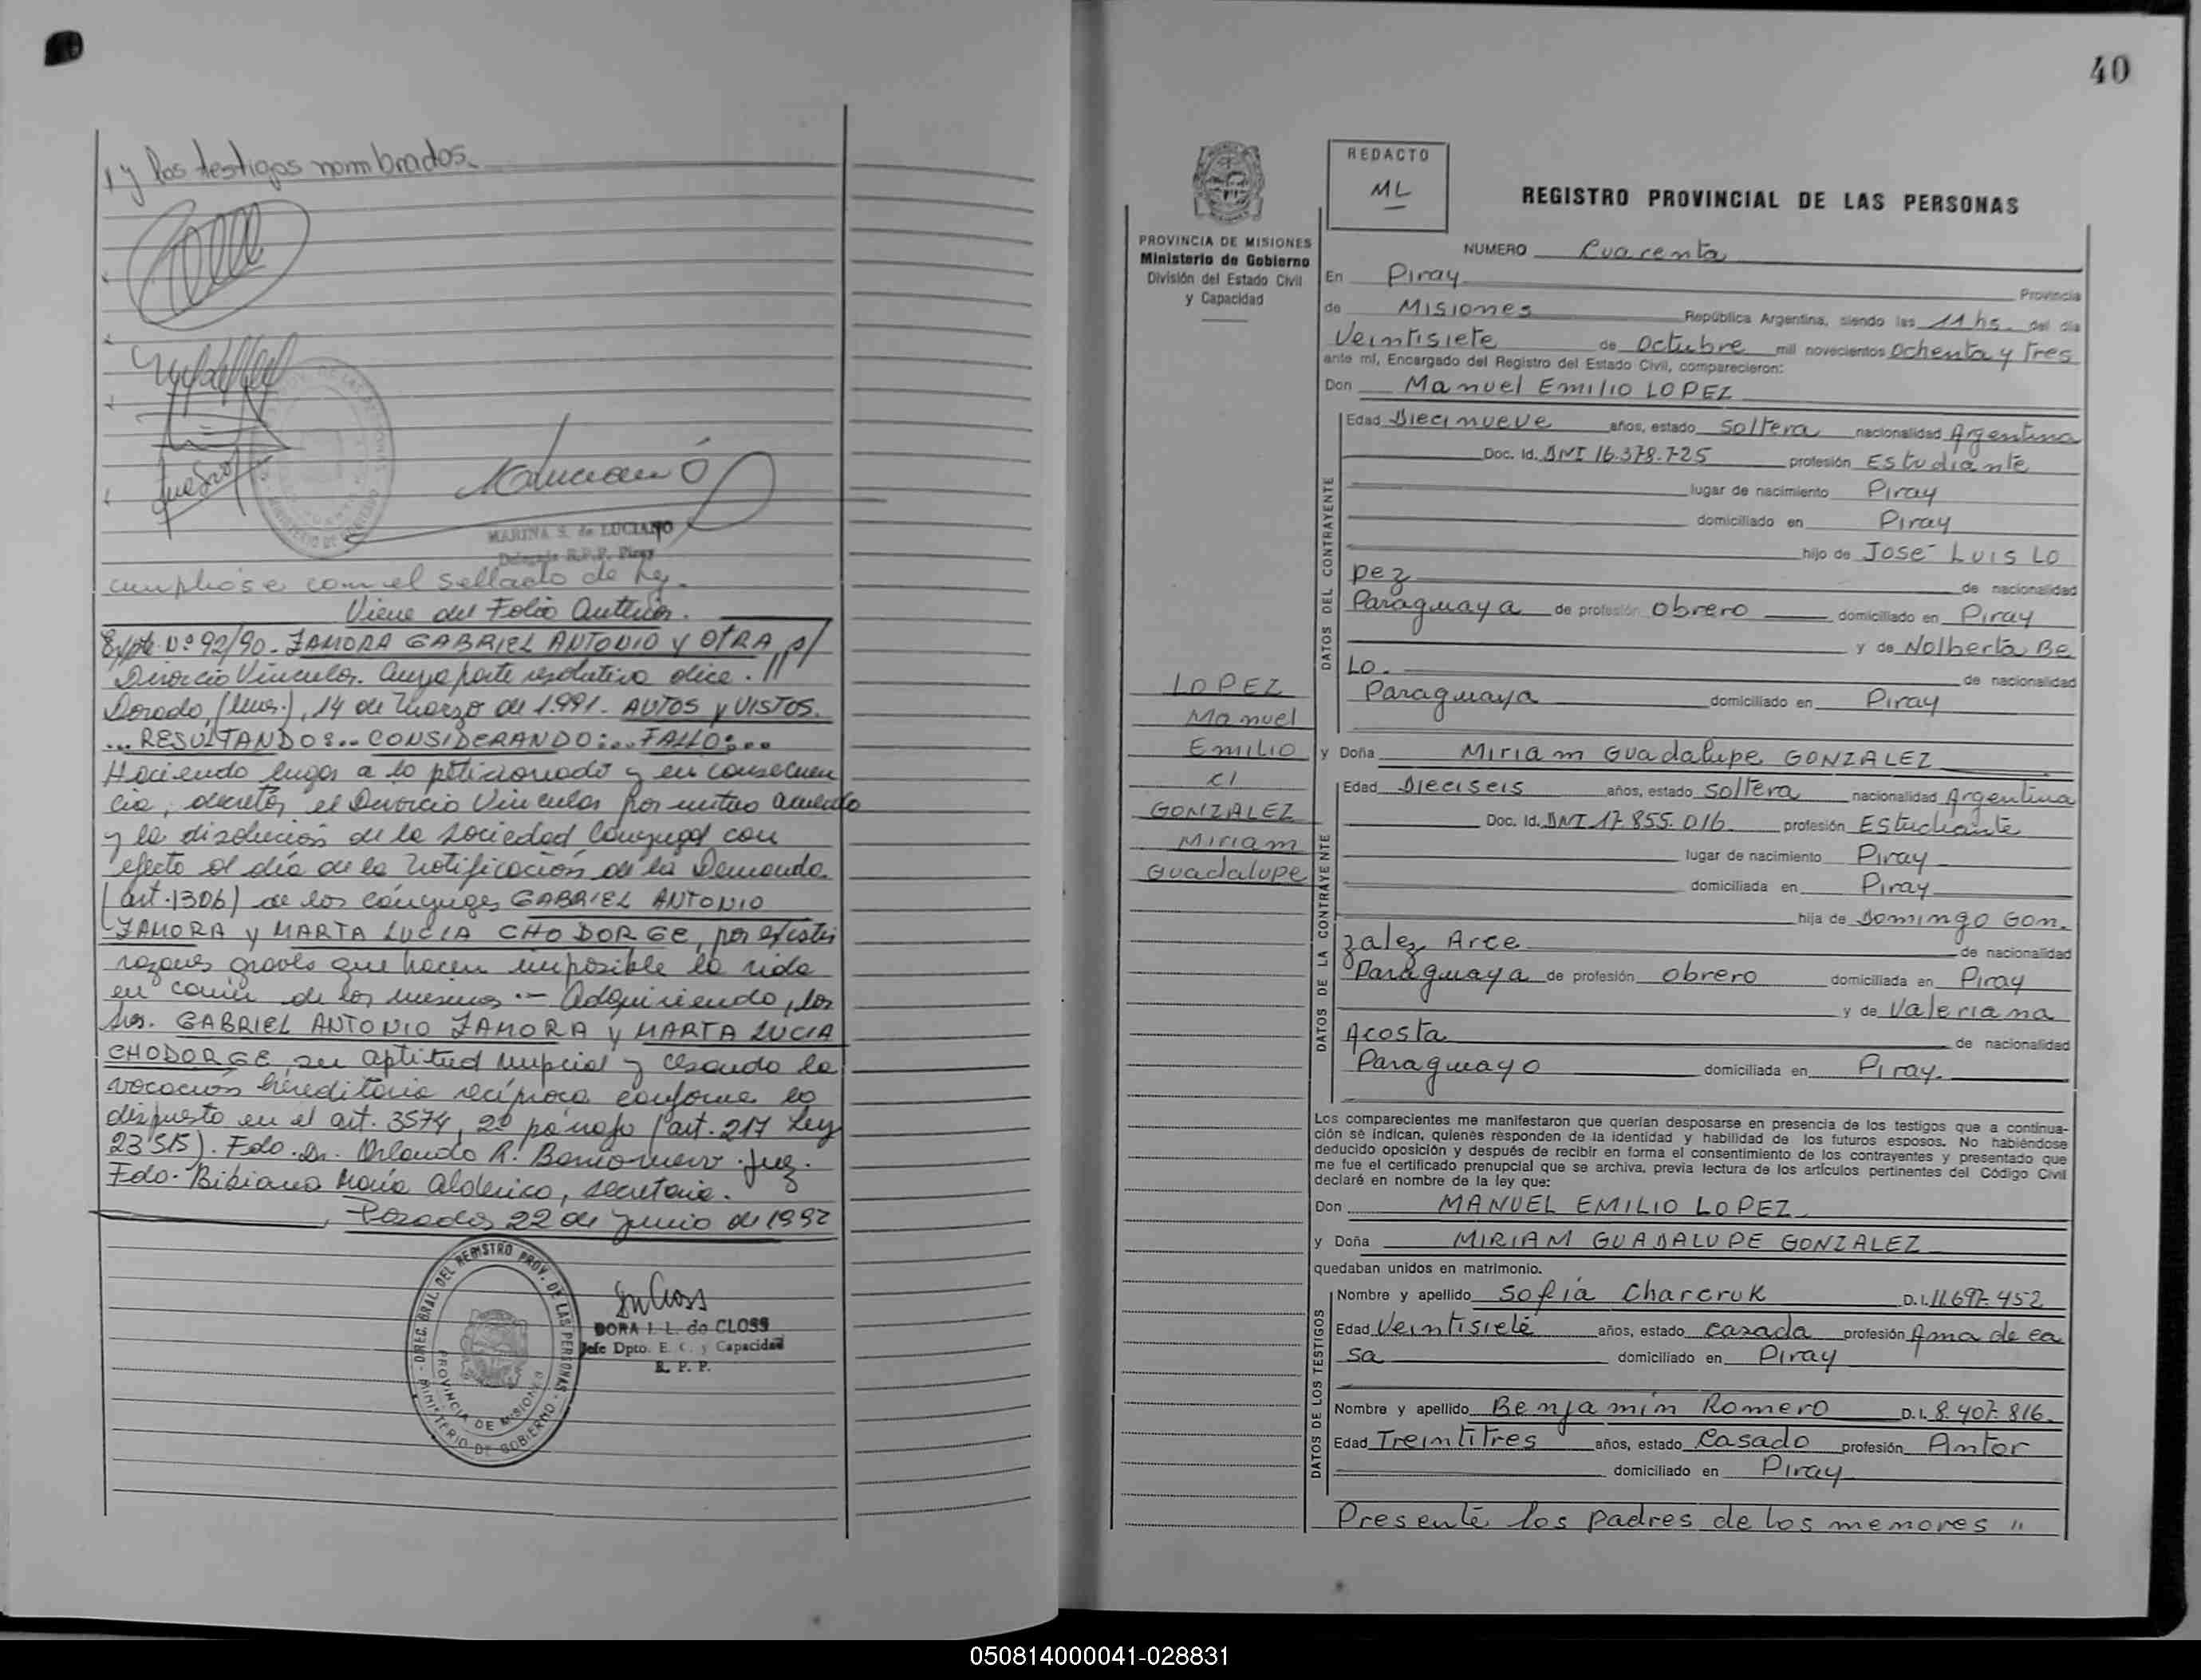 y los testigos nombrados.
MARINA S. de LUCIANO
Delegada R.P.P. Piray
cumpliose con el sellado de ley.
Viene del Folio Anterior.
Expte. Nº 92/90 - ZAMORA GABRIEL ANTONIO Y OTRA s/
Divorcio Vincular. Cuya parte resolutiva dice. //
Dorado, (Mnes.), 14 de Marzo de 1.991. AUTOS y VISTOS.
... RESULTANDO:.. CONSIDERANDO:... FALLO:...
Haciendo lugar a lo peticionado y en consecuen
cia, decretar el Divorcio Vincular por mutuo acuerdo
y la disolución de la Sociedad Conyugal con
efecto al día de la Notificación de la Demanda.
(art. 1306) de los cónyuges GABRIEL ANTONIO
ZAMORA y MARTA LUCIA CHODORGE, por existir
razones graves que hacen imposible la vida
en comun de los mismos.- Adquiriendo, los
Sres. GABRIEL ANTONIO ZAMORA y MARTA LUCIA
CHODORGE su aptitud nupcial y cesando la
vocación hereditaria recíproca conforme lo
dispuesto en el art. 3574, 2º párrafo (art. 217 Ley
23515). Fdo. Dr. Orlando R. Juez.
Fdo. Bibiana María Alderico, secretaria.
Posadas 22 de Junio de 1992
DIREC. GRAL. DEL REGISTRO PROV. DE LAS PERSONAS
PROVINCIA DE MISIONES
MINISTERIO DE GOBIERNO
DORA I. L. de CLOSS
Jefe Dpto. E. C. y Capacidad
R. P. P.
40
REDACTO
ML
REGISTRO PROVINCIAL DE LAS PERSONAS
PROVINCIA DE MISIONES
Ministerio de Gobierno
División del Estado Civil
y Capacidad
NUMERO Cuarenta
En Piray Provincia
de Misiones República Argentina, siendo las 11 hs. del día
Veintisiete de Octubre mil novecientos Ochenta y Tres
ante mí, Encargado del Registro del Estado Civil, comparecieron:
Don Manuel Emilio LOPEZ
DATOS DEL CONTRAYENTE
Edad Diecinueve años, estado soltera nacionalidad Argentina
Doc. Id. DNI 16.378.725 profesión Estudiante
lugar de nacimiento Piray
domiciliado en Piray
hijo de José Luis Lo
pez de nacionalidad
Paraguaya de profesión obrero domiciliado en Piray
y de Nolberta Be
Lo. de nacionalidad
Paraguaya domiciliado en Piray
LOPEZ
Manuel
Emilio
c/
GONZALEZ
Miriam
Guadalupe
y Doña Miriam Guadalupe GONZALEZ
DATOS DE LA CONTRAYENTE
Edad Dieciseis años, estado soltera nacionalidad Argentina
Doc. Id. DNI 17.855.016 profesión Estudiante
lugar de nacimiento Piray
domiciliada en Piray
hija de Domingo Gon.
zalez Arce de nacionalidad
Paraguaya de profesión obrero domiciliada en Piray
y de Valeriana
Acosta de nacionalidad
Paraguayo domiciliada en Piray.
Los comparecientes me manifestaron que querían desposarse en presencia de los testigos que a continua-
ción se indican, quienes responden de la identidad y habilidad de los futuros esposos. No habiéndose
deducido oposición y después de recibir en forma el consentimiento de los contrayentes y presentado que
me fue el certificado prenupcial que se archiva, previa lectura de los artículos pertinentes del Código Civil
declaré en nombre de la ley que:
Don MANUEL EMILIO LOPEZ
y Doña MIRIAM GUADALUPE GONZALEZ
quedaban unidos en matrimonio.
DATOS DE LOS TESTIGOS
Nombre y apellido Sofía Charcruk D.I. 11.697.452
Edad Veintisiete años, estado casada profesión Ama de ca
sa domiciliado en Piray
Nombre y apellido Benjamin Romero D.I. 8.407.816.
Edad Treintitres años, estado Casado profesión Pintor
domiciliado en Piray
Presente los padres de los menores "
050814000041-028831